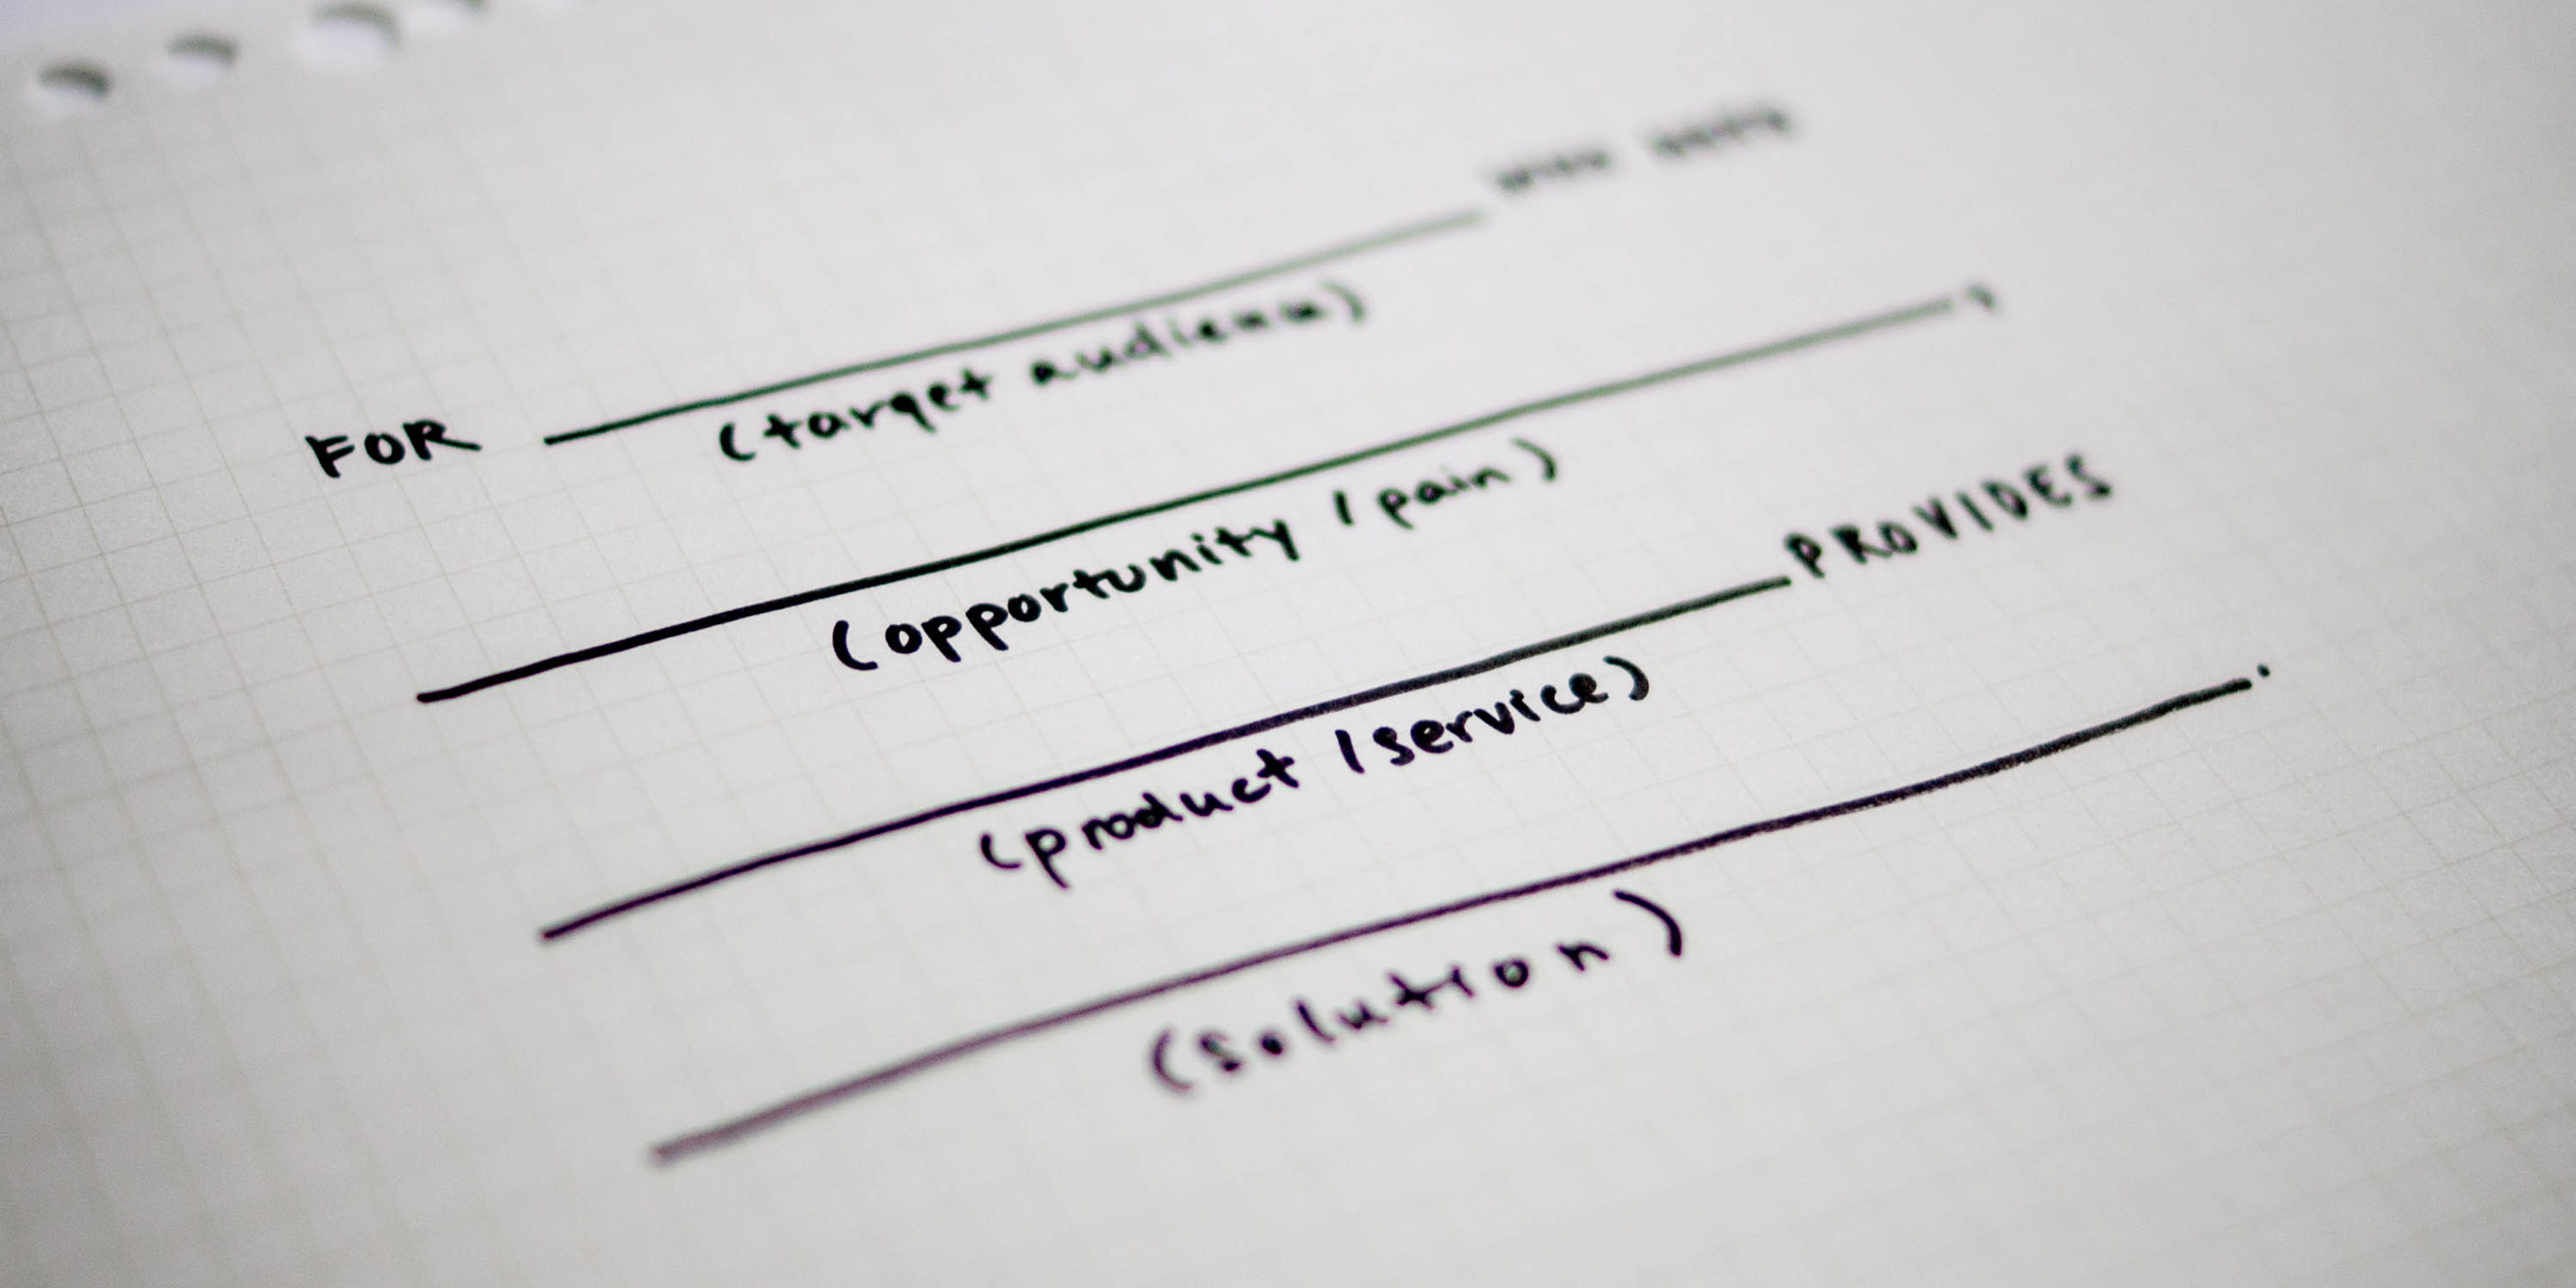 FOR
(target audience)
(opportunity / pain) ,
PROVIDES
(product / service)
.
(solution)